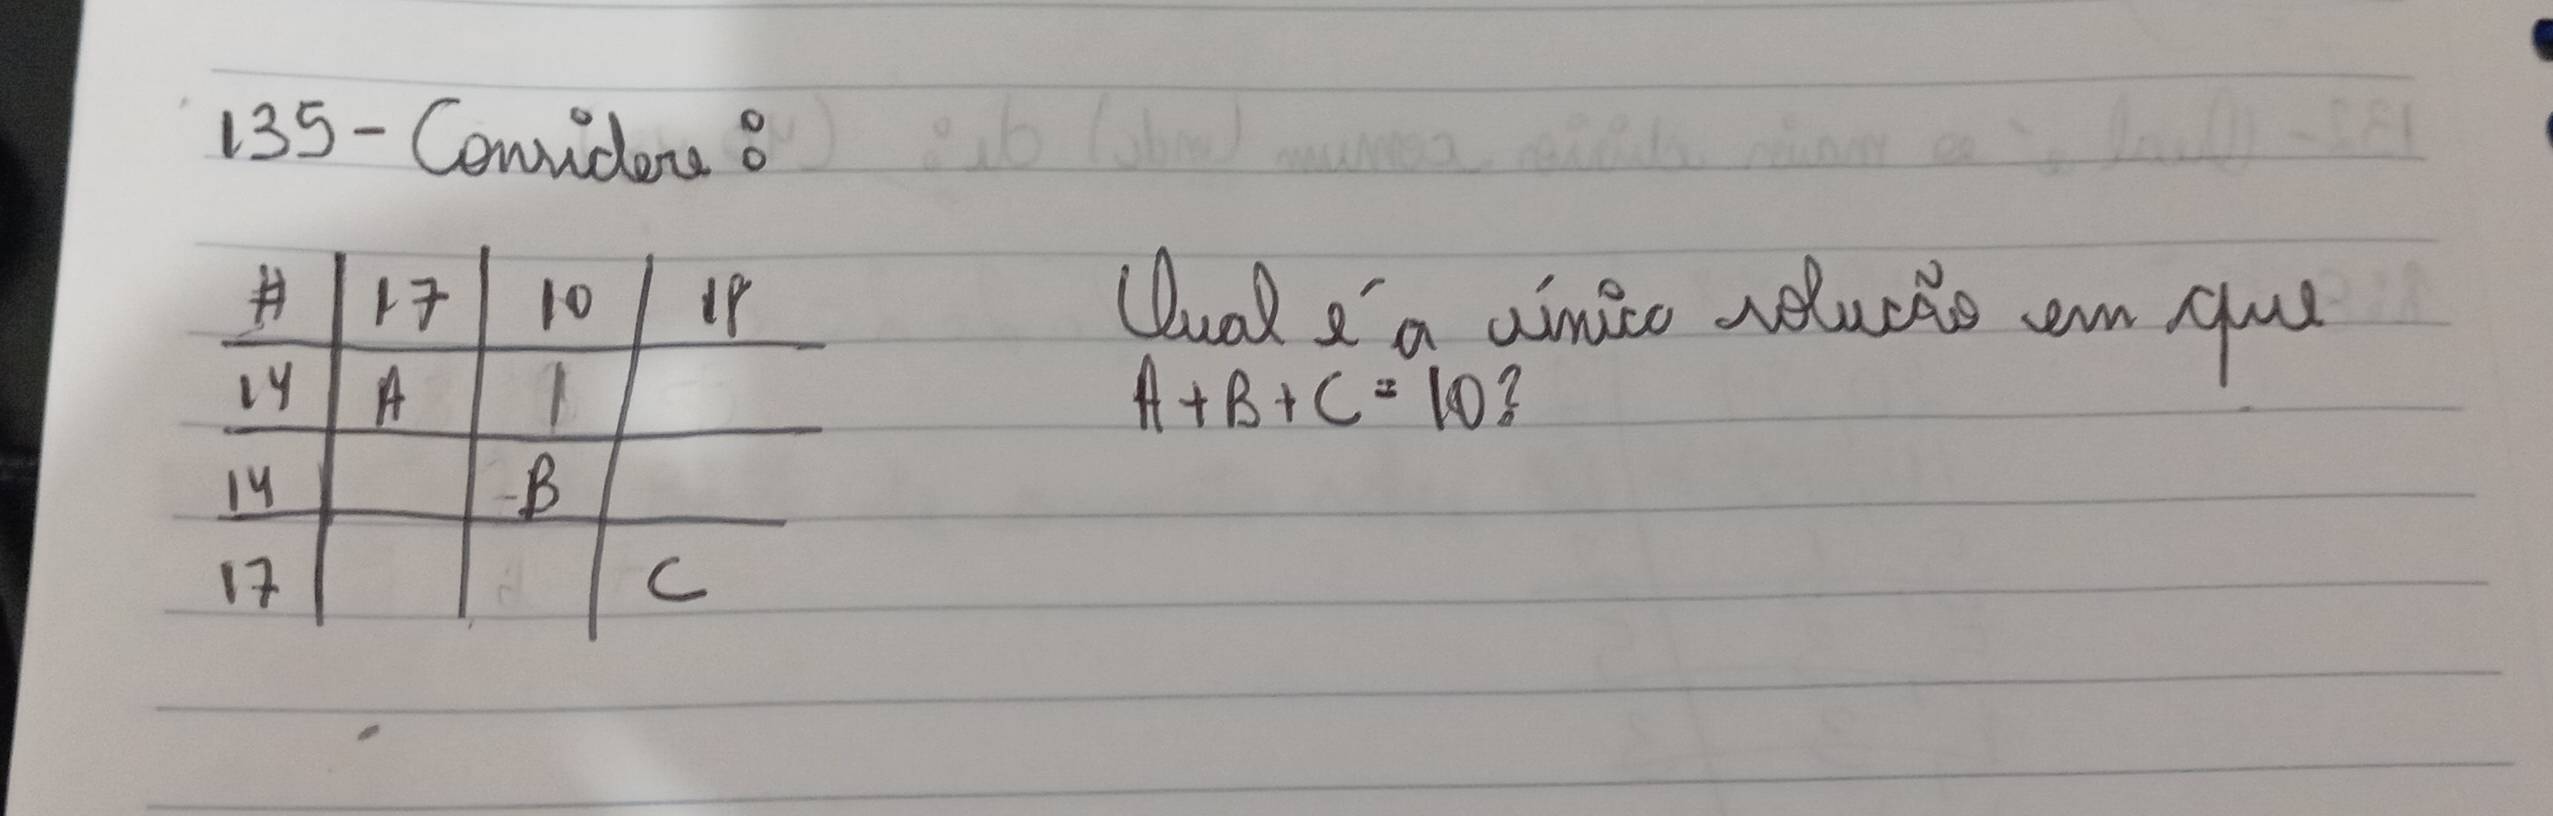 135 - Considere :
# | 17 | 10 | 18
14 | A | 1 |
14 | | B |
17 | | | C
Qual é a único solução em que
A + B + C = 10?